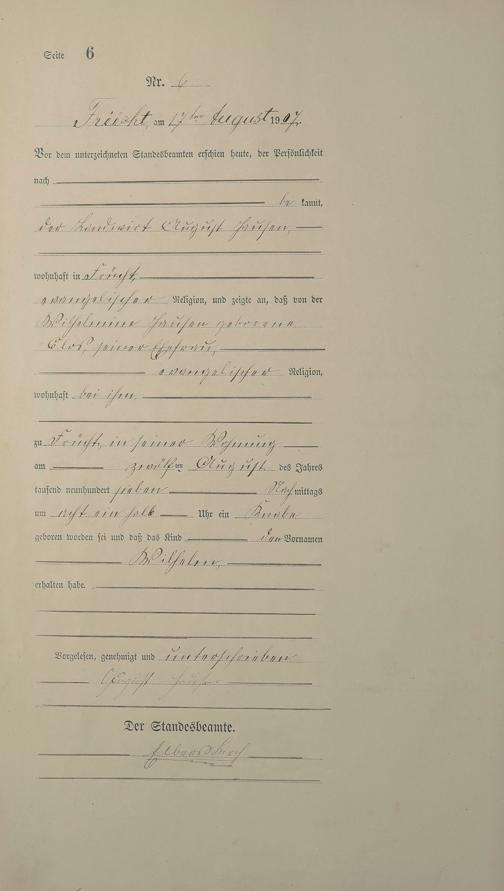 Seite 6
Nr. 6
Frücht, am 17ten August 1907.
Vor dem unterzeichneten Standesbeamten erschien heute, der Persönlichkeit
nach
be kannt,
der Landwirt August Hausen,
wohnhaft in Frücht,
evangelischer Religion, und zeigte an, daß von der
Wilhelmine Hausen geborene
Clos, seiner Ehefrau,
evangelischer Religion,
wohnhaft bei ihm
zu Frücht, in seiner Wohnung
am zwölften August des Jahres
tausend neunhundert sieben Nachmittags
um acht ein halb Uhr ein Knabe
geboren worden sei und daß das Kind den Vornamen
Wilhelm,
erhalten habe.
Vorgelesen, genehmigt und unterschrieben
August Hausen
Der Standesbeamte.